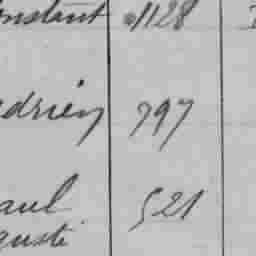 onstant 1128
edrien 797
aul 521
guste